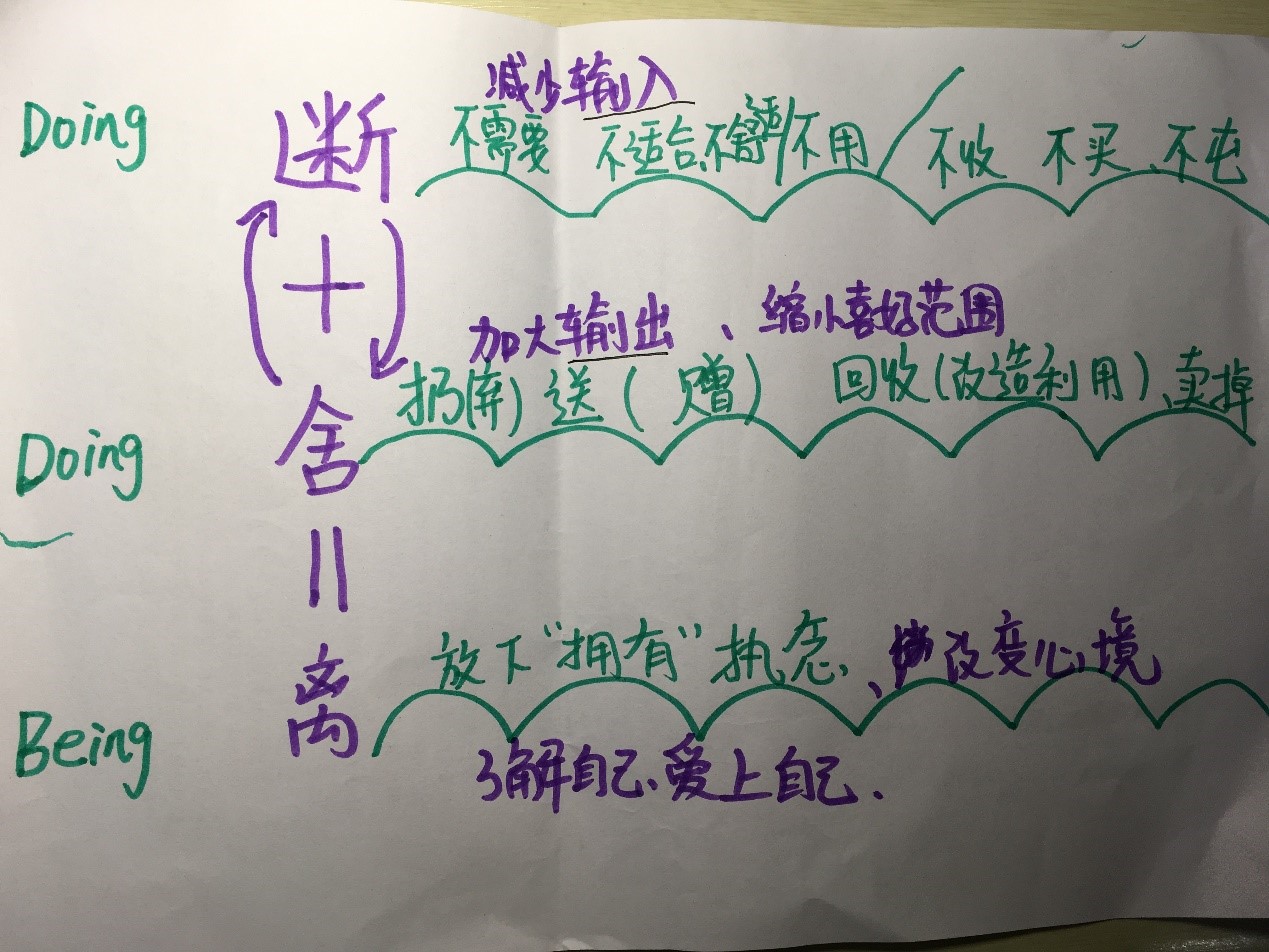 减少输入
Doing 断 不需要 不适合、不舒适/不用/不收 不买、不屯
+
加大输出、缩小喜好范围
Doing 舍 扔(弃) 送(赠) 回收(改造利用)、卖掉
=
Being 离 放下“拥有”执念、改变心境
了解自己、爱上自己.